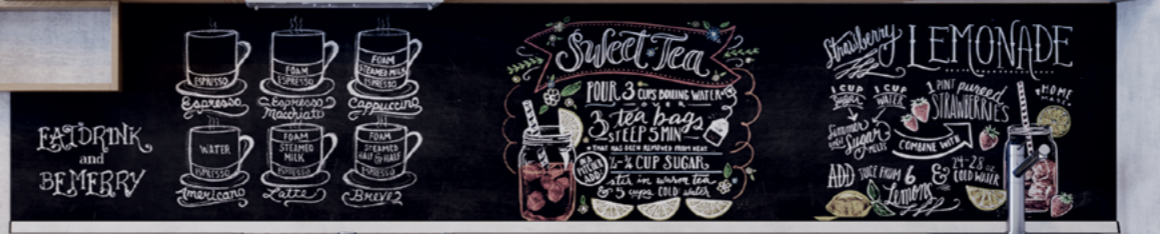 EAT DRINK
and
BE MERRY
ESPRESSO
Espresso
FOAM
ESPRESSO
Espresso
Macchiato
FOAM
STEAMED MILK
ESPRESSO
Cappuccino
WATER
ESPRESSO
Americano
FOAM
STEAMED
MILK
ESPRESSO
Latte
FOAM
STEAMED
HALF & HALF
ESPRESSO
Breve
Sweet Tea
POUR 3 CUPS BOILING WATER
over
3 tea bags
STEEP 5 MIN
THAT HAS BEEN REMOVED FROM HEAT
CUP SUGAR
stir in warm tea
& 5 cups COLD WATER
Strawberry LEMONADE
1 CUP
SUGAR
1 CUP
WATER
1 PINT pureed
STRAWBERRIES
HOME
MADE
Simmer
until Sugar
MELTS
COMBINE WITH
ADD JUICE FROM 6
Lemons
&
COLD WATER